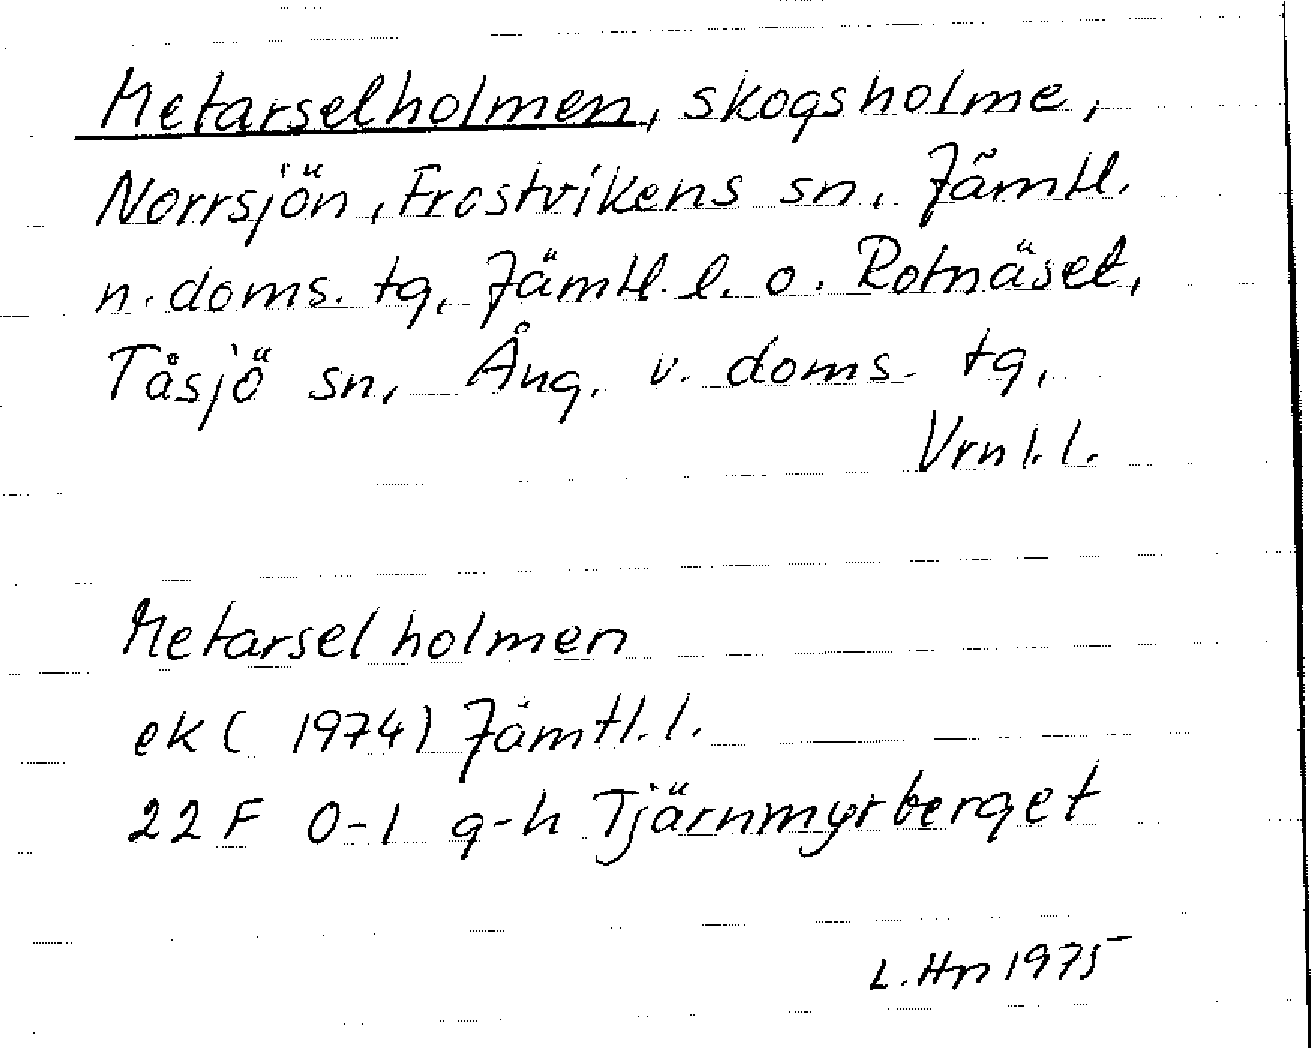 Metarselholmen, skogsholme,
Norrsjön, Frostvikens sn, Jämtl.
n. doms. tg, Jämtl. l. o. Rotnäset,
Tåsjö sn, Ång. v. doms. tg,
Vrnl. l.
Metarselholmen
ek ( 1974) Jämtl. l.
22 F 0-1 g-h Tjärnmyrberget
L. Hn 1975